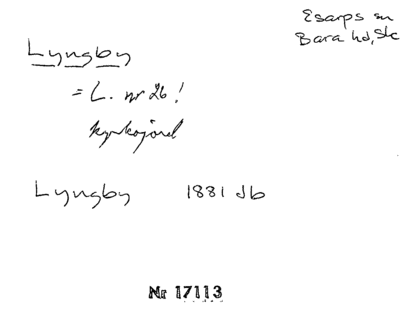 Esarps sn
Bara hd, Sk
Lyngby
= L. nr 26!
kyrkojord
Lyngby 1881 Jb
Nr 17113